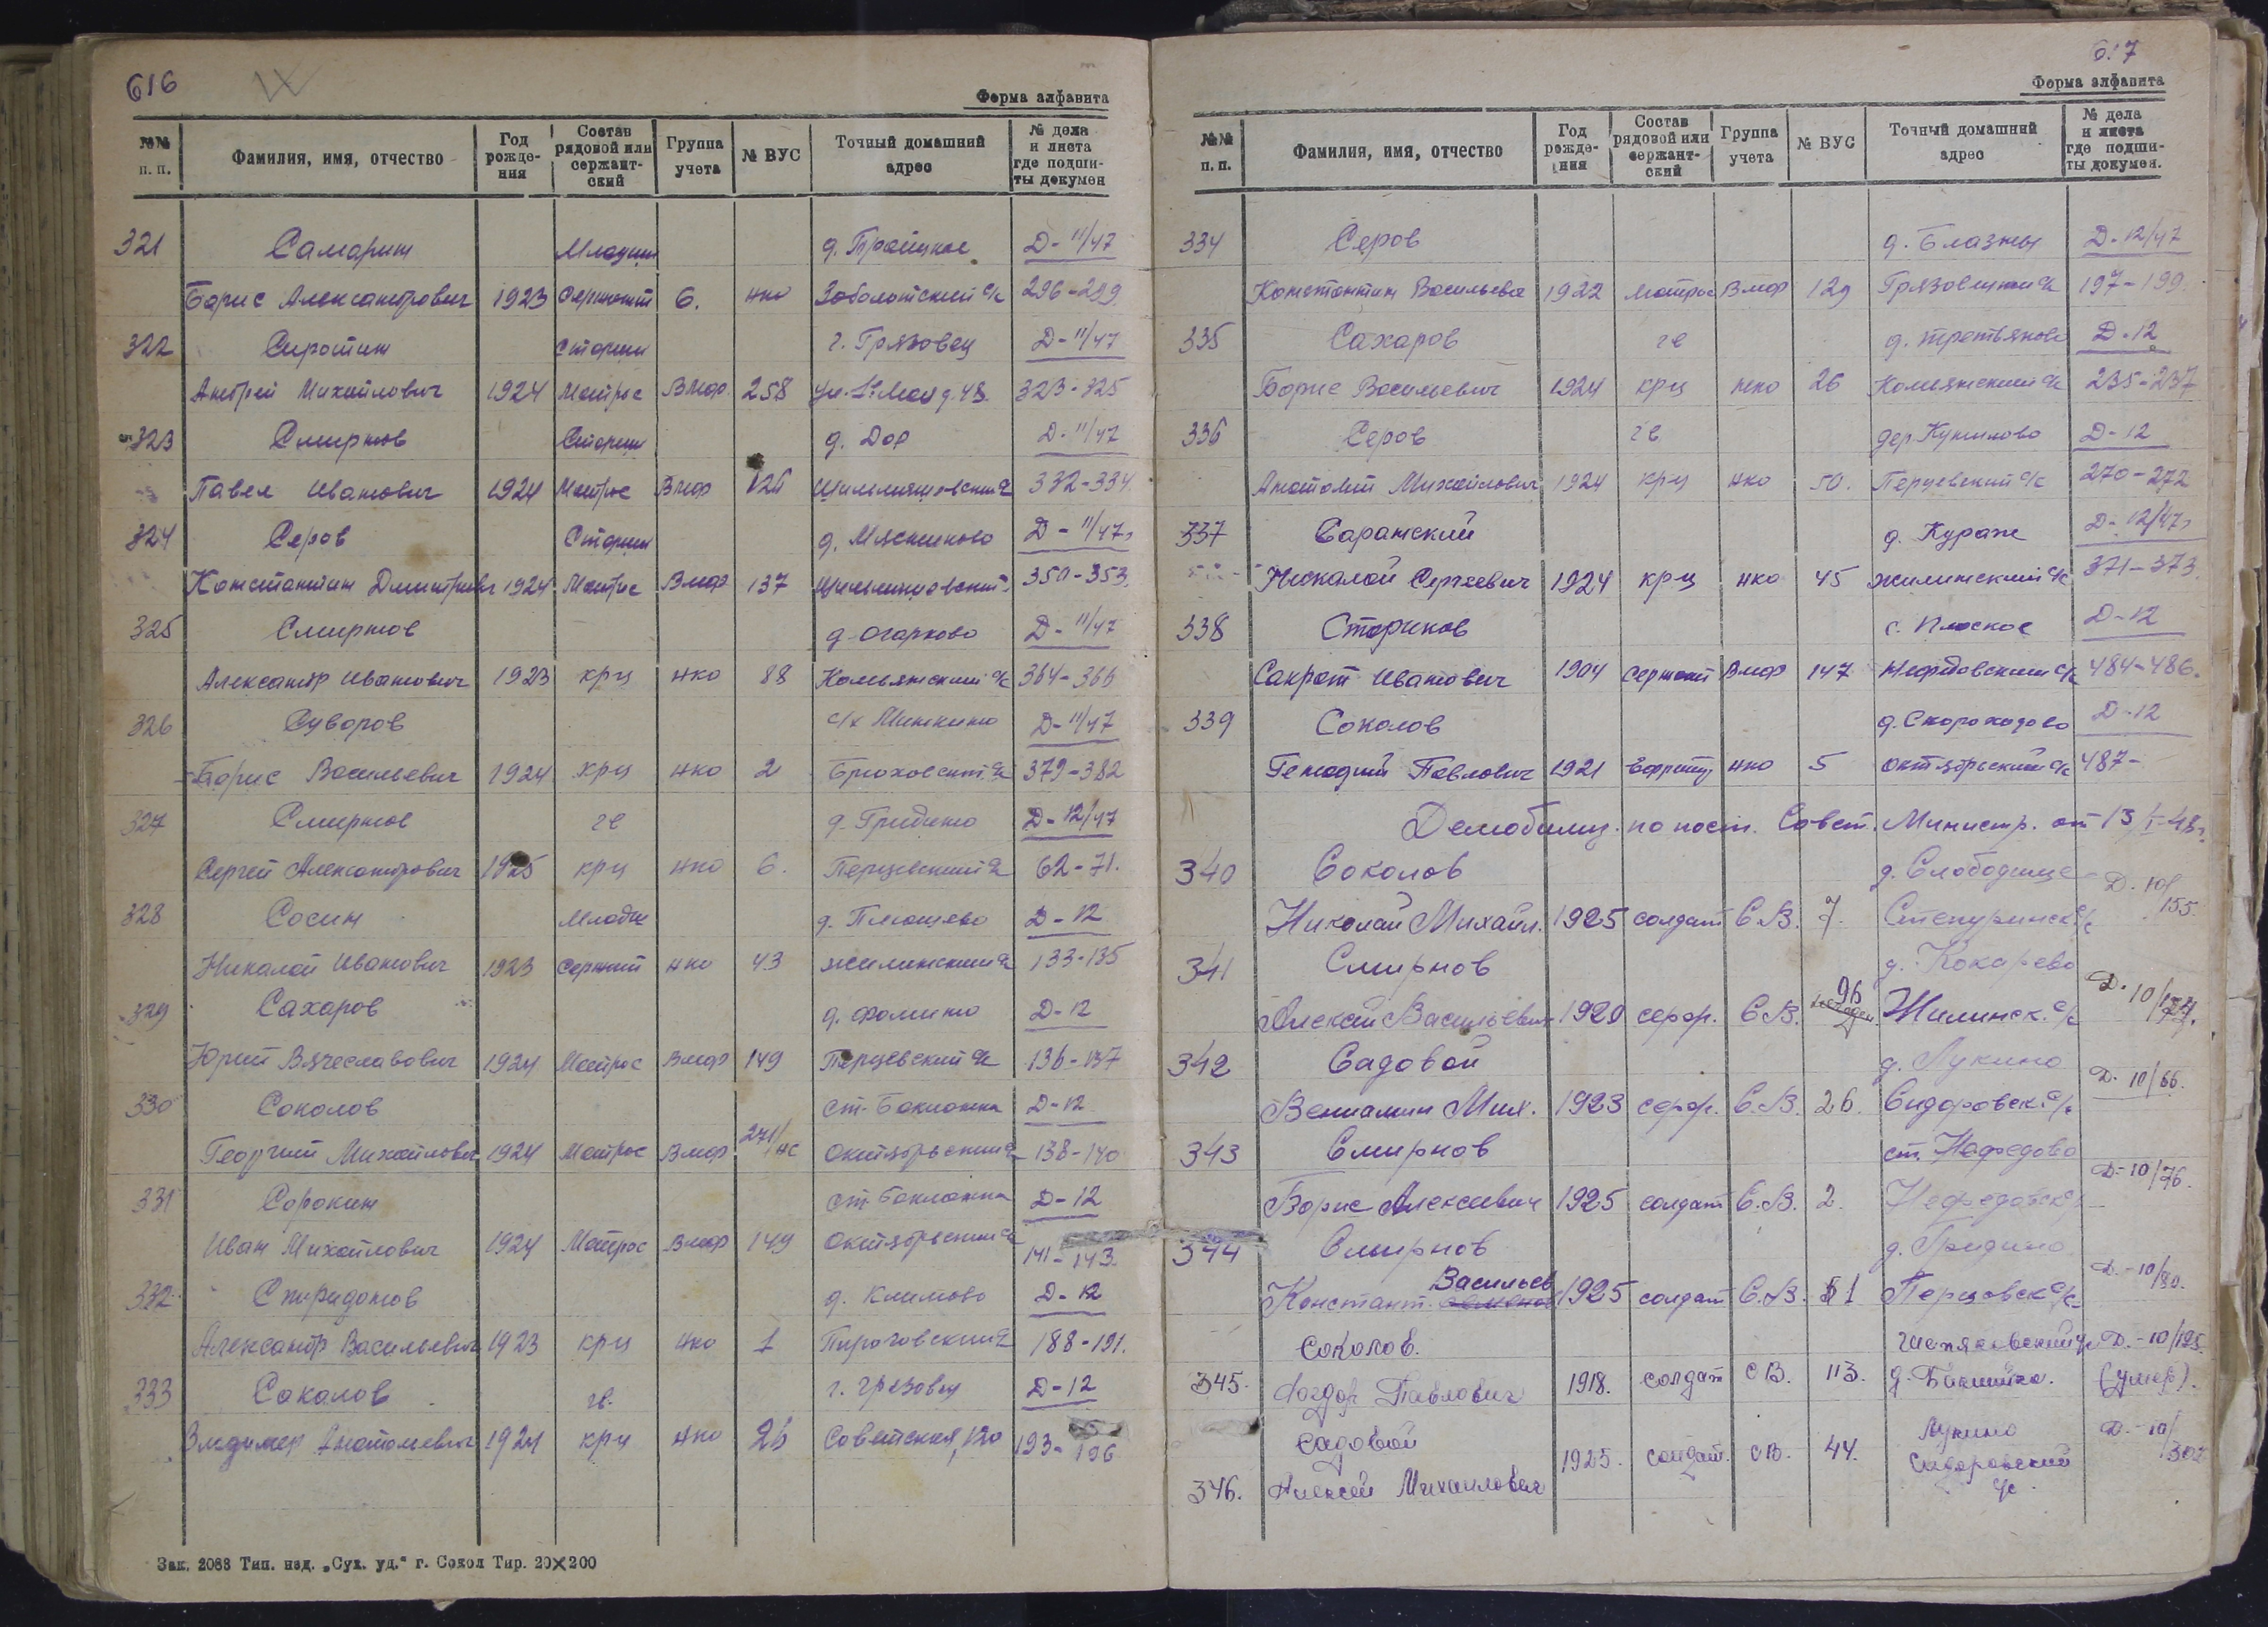 616
Форма алфавита
№№ п. п. Фамилия, имя, отчество Год рождения Состав рядовой или сержантский Группа учета № ВУС Точный домашний адрес № дела и листа где подшиты докумен
321 Самарин Младши д. Троицкое Д-11/47
Борис Александрович 1923 Сержант 6. нко Заболотский с/с 296-299
322 Сиротин Старши г. Грязовец Д-11/47
Андрей Михайлович 1924 Матрос Вмф. 258 ул. 1е Мая д. 48. 323-325
323 Смирнов Старши д. Дор Д-11/47
Павел Иванович 1924 Матрос Вмф 126 332-334.
324 Серов Старши д. Мясниково Д-11/47г
Константин Дмитриевич 1924 Матрос Вмф 137 350-353.
325 Смирнов д. Огарково Д-11/47
Александр Иванович 1923 крц нко 88 Комьянский с/с 364-366
326 Суворов с/х Минкино Д-11/47
Борис Васильевич 1924 крц нко 2 379-382
327 Смирнов гв д. Гридино Д-12/47
Сергей Александрович 1925 крц нко 6. Перцевский с/с 62-71.
328 Сосин Младш д. Плющево Д-12
Николай Иванович 1923 Сержант нко 43 Жилинский с/с 133-135
329 Сахаров д. Фомино Д-12
Юрий Вячеславович 1924 Матрос Вмф 149 Перцевский с/с 136-137
330 Соколов ст. Бакланка Д-12
Георгий Михайлович 1924 Матрос Вмф 271/нс Октябрьский с/с 138-140
331 Сорокин ст. Бакланка Д-12
Иван Михайлович 1924 Матрос Вмф 149 Октябрьский с/с 141-143.
332 Спиридонов д. Климово Д-12
Александр Васильевич 1923 крц нко 1 Пироговский с/с 188-191.
333 Соколов гв. г. Грязовец Д-12
Владимер Анатольевич 1924 крц нко 26 Советская, 120 193-196
Зак. 2088 Тип. изд. „Сух. уд.“ г. Сокол Тир. 20×200
617
Форма алфавита
№№ п. п. Фамилия, имя, отчество Год рождения Состав рядовой или сержантский Группа учета № ВУС Точный домашний адрес № дела и листа где подшиты докумен.
334 Серов д. Блазны Д-12/47
Константин Васильевич 1922 Матрос Вмф 129 Грязовецкий с/с 197-199.
335 Сахаров гв д. Третьяково Д-12
Борис Васильевич 1924 крц нко 26 Комьянский с/с 235-237
336 Серов гв дер. Куксилово Д-12
Анатолий Михайлович 1924 крц нко 50. Перцевский с/с 270-272
337 Саранский д. Кураж Д-12/47г
Николай Сергеевич 1924 крц нко 45 Жилинский с/с 371-373.
338 Стариков с. Плоское Д-12
Сакрат Иванович 1904 Сержант Вмф 147 Нефедовский с/с 484-486.
339 Соколов д. Скороходово Д-12
Генадий Павлович 1921 Ефрейт нко 5 Октябрьский с/с 487-
Демобилиз. по пост. Совет. Министр. от 13/I-48г.
340 Соколов д. Слободище Д. 10/155.
Николай Михайл. 1925 солдат С.В. 7. Степуринск с/с
341 Смирнов д. Кокарево Д. 10/
Алексей Васильевич 1920 серж. С.В. 96 Жилинск. с/с
342 Садовой д. Лукино Д. 10/66.
Вениамин Мих. 1923 серж. С.В. 26. Сидоровск. с/с
343 Смирнов ст. Нефедово Д-10/76.
Борис Алексеевич 1925 солдат С.В. 2. Нефедовск с/с
344 Смирнов д. Гридино Д.-10/80.
Констант. Васильев 1925 солдат С.В. 1 Перцовск с/с
Соколов. с/с Д.-10/195.
345. Фёдор Павлович 1918. солдат СВ. 113. д. Бакшино. (умер).
Садовой Лукино Д.-10/302
346. Алексей Михайлович 1925. солдат. СВ. 44. Сидоровский с/с.